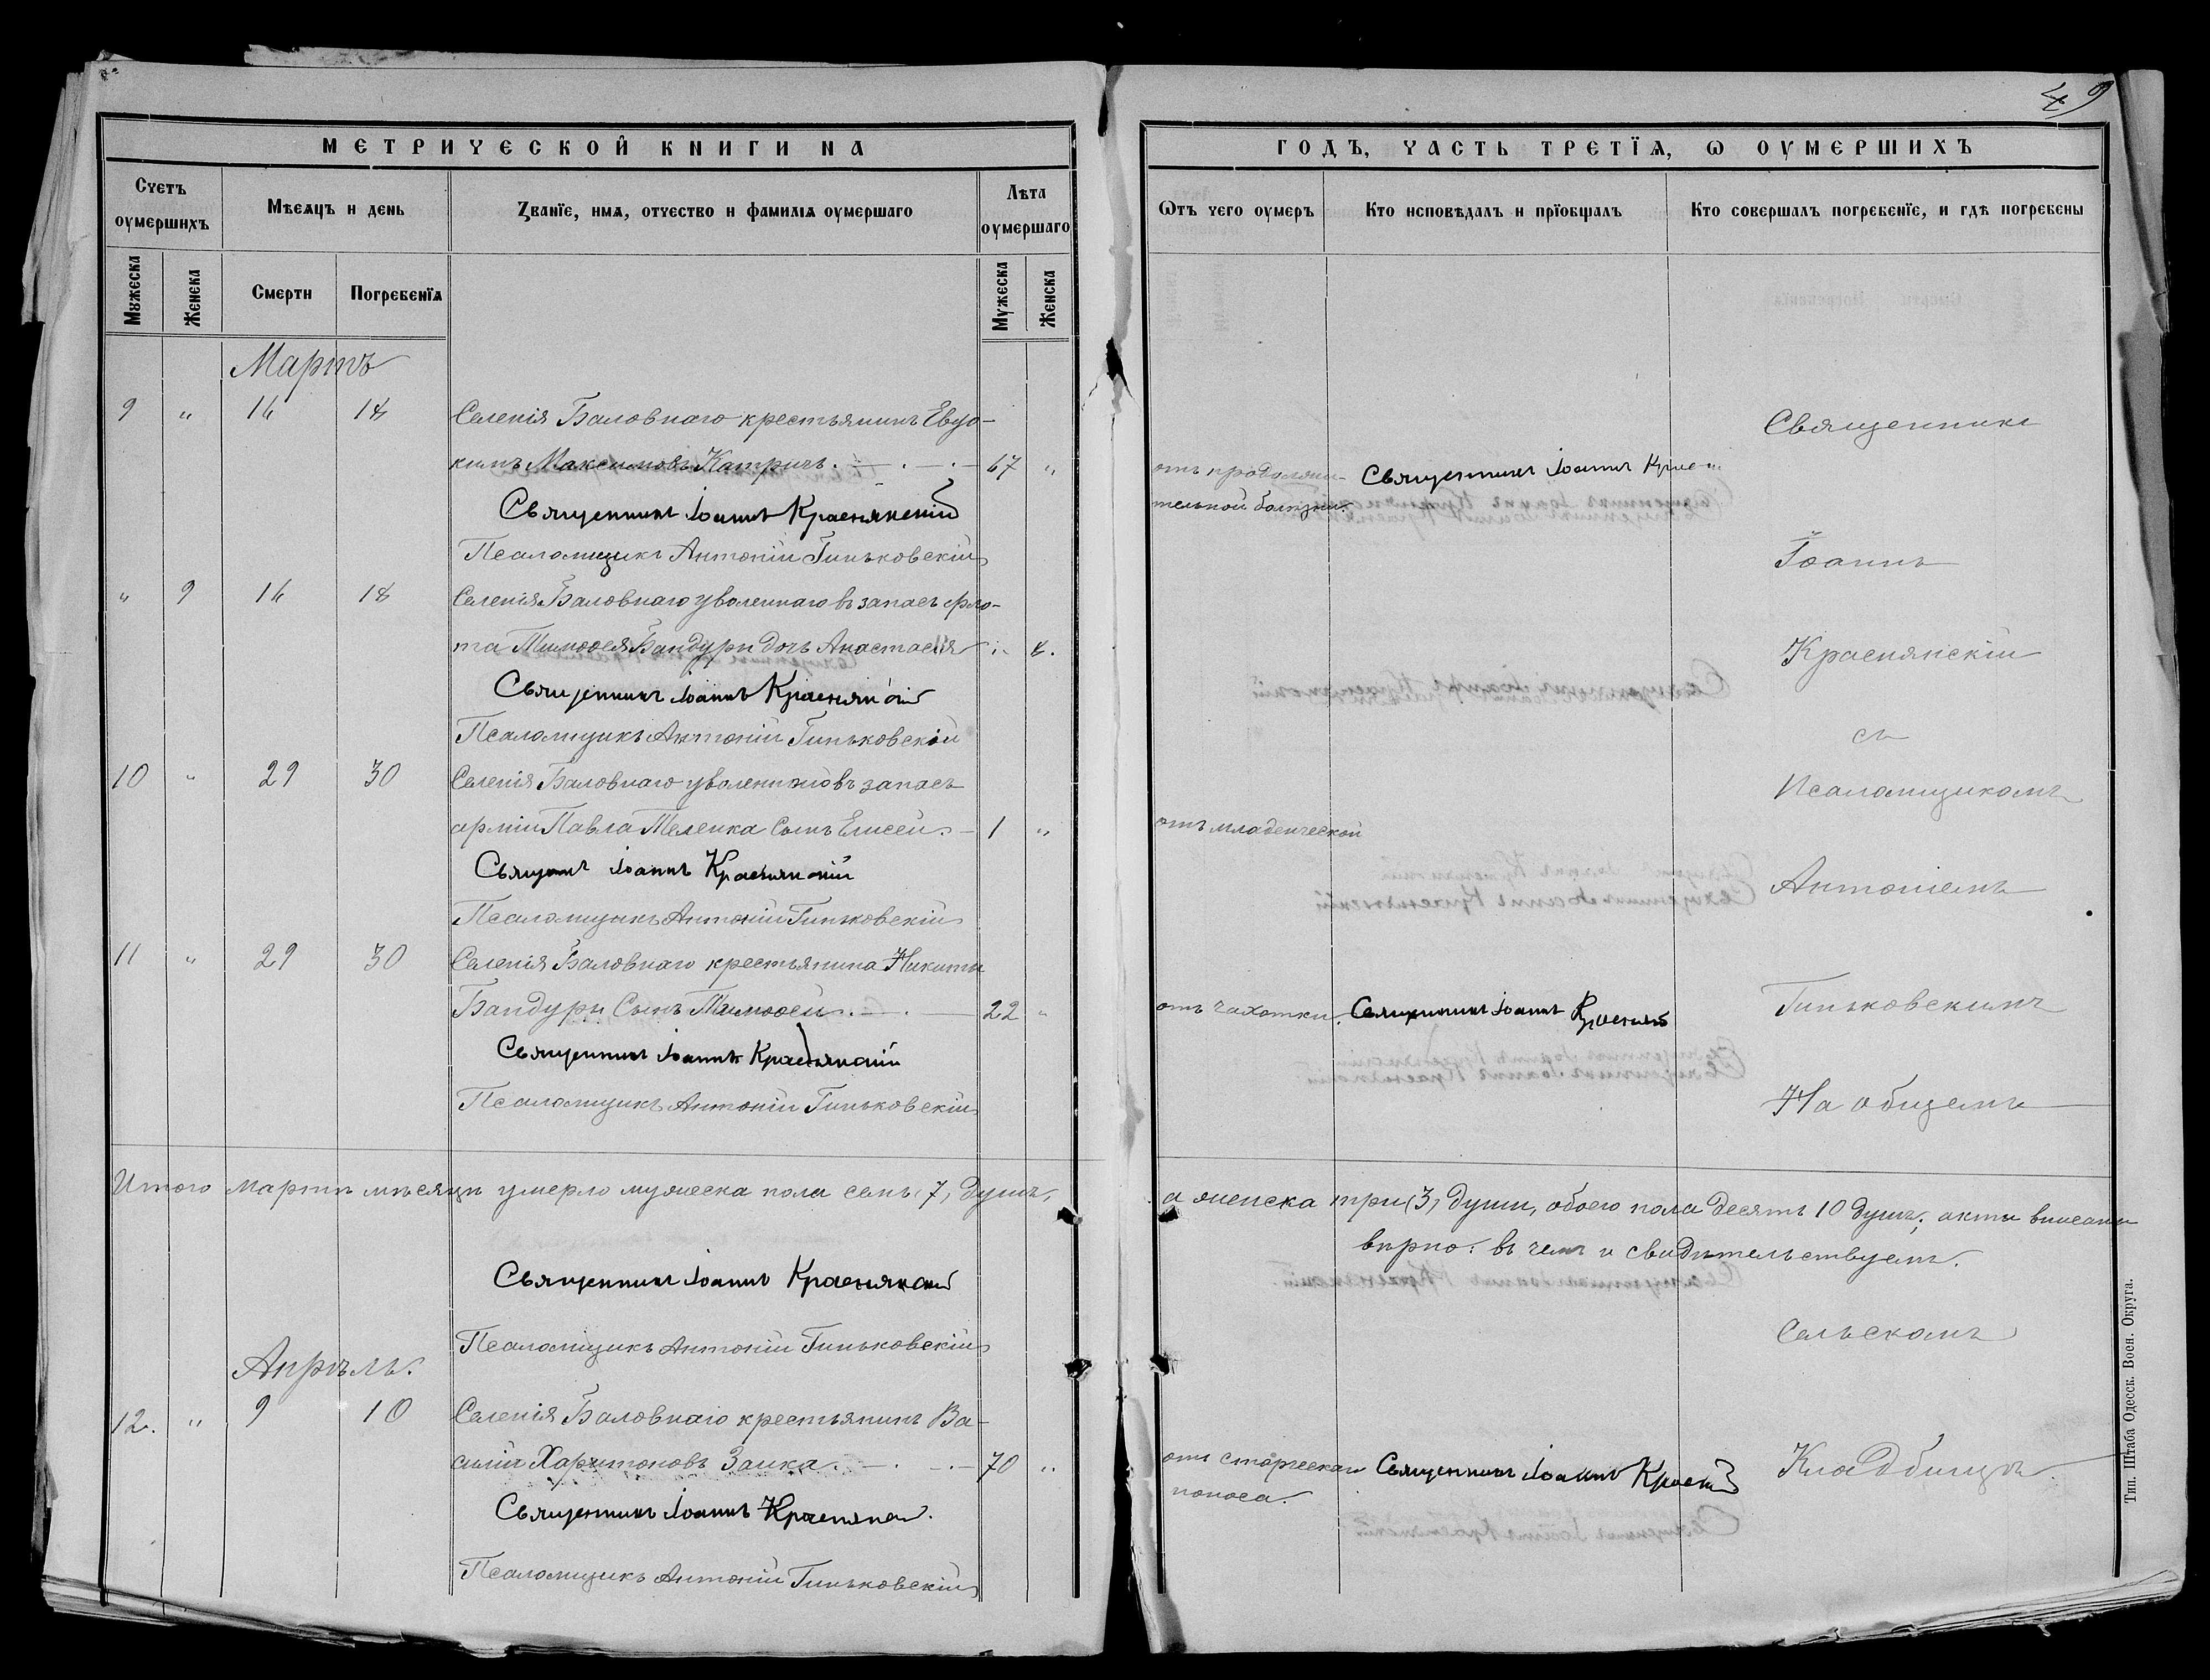 49
МЕТРИЧЕСКОЙ КНИГИ НА
ГОДЪ, ЧАСТЬ ТРЕТЇѦ, Ѡ ОУМЕРШИХЪ
Счетъ оумершихъ
Мѣсѧцъ и день
Званїе, имѧ, отчество и фамилїѧ оумершаго
Лѣта оумершаго
Мꙋжеска
Женска
Смерти
Погребенїѧ
Мꙋжеска
Женска
Ѿтъ чего оумеръ
Кто исповѣдалъ и прїобщалъ
Кто совершалъ погребенїе, и гдѣ погребены
Мартъ
9 " Селенія Баловнаго крестьянинъ Евдо-
кимъ Максимовъ Катричъ. 67 "
Священникъ Іоаннъ Краснянскій
Псаломщикъ Антоній Гиньковскій
" 9 Селенія Баловнаго уволеннаго въ запасъ фло-
та Тимоѳея Бандуры дочь Анастасія
Священникъ Іоаннъ Краснянскій
Псаломщикъ Антоній Гиньковскій
10 " 29 30 Селенія Баловнаго уволеннаго въ запасъ
арміи Павла Теленка сынъ Елисей. 1 "
Священ. Іоаннъ Краснянскій
Псаломщикъ Антоній Гиньковскій
11 " 29 30 Селенія Баловнаго крестьянина Никиты
Бандуры Сынъ Тимоѳей. 22 "
Священникъ Іоаннъ Краснянскій
Псаломщикъ Антоній Гиньковскій
отъ продолжи-
тельной болѣзни.
Священникъ Іоаннъ
отъ младенческой
отъ чахотки.
Священникъ Іоаннъ
Священникъ
Іоаннъ
Краснянскій
съ
Псаломщикомъ
Антоніемъ
Гиньковскимъ
На общемъ
Итого Мартѣ мѣсяцѣ умерло мужеска пола семь (7) душъ,
а женска три (3) души, обоего пола десять 10 душъ; акты вписаны
вѣрно: въ чемъ и свидѣтельствуемъ.
Священникъ Іоаннъ Краснянскій
Псаломщикъ Антоній Гиньковскій
Апрѣль.
12. " 9 10 Селенія Баловнаго крестьянинъ Ва-
силій Харитоновъ Заика. 70 "
Священникъ Іоаннъ Краснянскій
Псаломщикъ Антоній Гиньковскій
отъ старческаго
поноса.
Священникъ Іоаннъ
Сельскомъ
Кладбищѣ
Тип. Штаба Одесск. Воен. Округа.